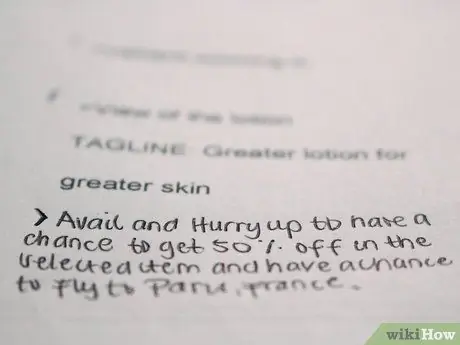 review of the lotion
TAGLINE Greater lotion for
greater skin
> Avail and Hurry up to have a
chance to get 50% off in the
selected item and have a chance
to fly to Paris, France.
wikiHow